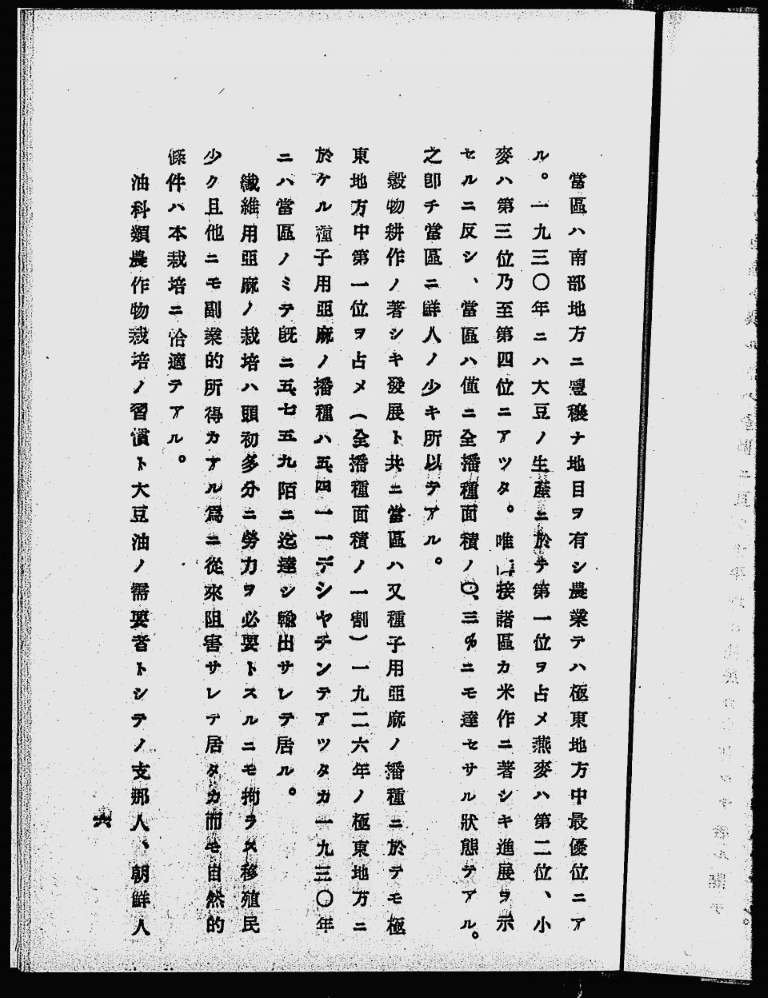 當區ハ南部地方ニ豐穰ナ地目ヲ有シ農業テハ極東地方中最優位ニア
ル。一九三〇年ニハ大豆ノ生產ニ於テ第一位ヲ占メ燕麥ハ第二位、小
麥ハ第三位乃至第四位ニアツタ。唯接諸區カ米作ニ著シキ進展ヲ示
セルニ反シ、當區ハ僅ニ全播種面積ノ〇、三%ニモ達セサル狀態テアル。
之卽チ當區ニ鮮人ノ少キ所以テアル。
穀物耕作ノ著シキ發展ト共ニ當區ハ又種子用亞麻ノ播種ニ於テモ極
東地方中第一位ヲ占メ（全播種面積ノ一割）一九二六年ノ極東地方ニ
於ケル種子用亞麻ノ播種ハ五四一一デシヤチンテアツタカ一九三〇年
ニハ當區ノミテ旣ニ五七五九陌ニ迄達シ輸出サレテ居ル。
纖維用亞麻ノ栽培ハ頭初多分ニ勞力ヲ必要トスルニモ拘ラス移殖民
少ク且他ニモ副業的所得カアル爲ニ從來阻害サレテ居タカ而モ自然的
條件ハ本栽培ニ恰適テアル。
油科類農作物栽培ノ習慣ト大豆油ノ需要者トシテノ支那人、朝鮮人
六